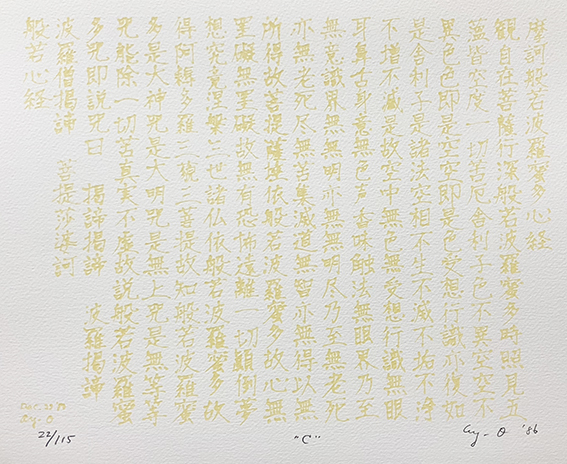 摩訶般若波羅蜜多心経
観自在菩薩行深般若波羅蜜多時照見五
蘊皆空度一切苦厄舎利子色不異空空不
異色色即是空空即是色受想行識亦復如
是舎利子是諸法空相不生不滅不垢不浄
不増不減是故空中無色無受想行識無眼
耳鼻舌身意無色声香味触法無眼界乃至
無意識界無無明亦無無明尽乃至無老死
亦無老死尽無苦集滅道無智亦無得以無
所得故菩提薩埵依般若波羅蜜多故心無
罣礙無罣礙故無有恐怖遠離一切顛倒夢
想究竟涅槃三世諸仏依般若波羅蜜多故
得阿耨多羅三藐三菩提故知般若波羅蜜
多是大神咒是大明咒是無上咒是無等等
咒能除一切苦真実不虚故説般若波羅蜜
多咒即説咒曰 揭諦揭諦 波羅揭諦
波羅僧揭諦 菩提莎婆訶
般若心経
Ay-O
22/115
"C"
Ay-O '86